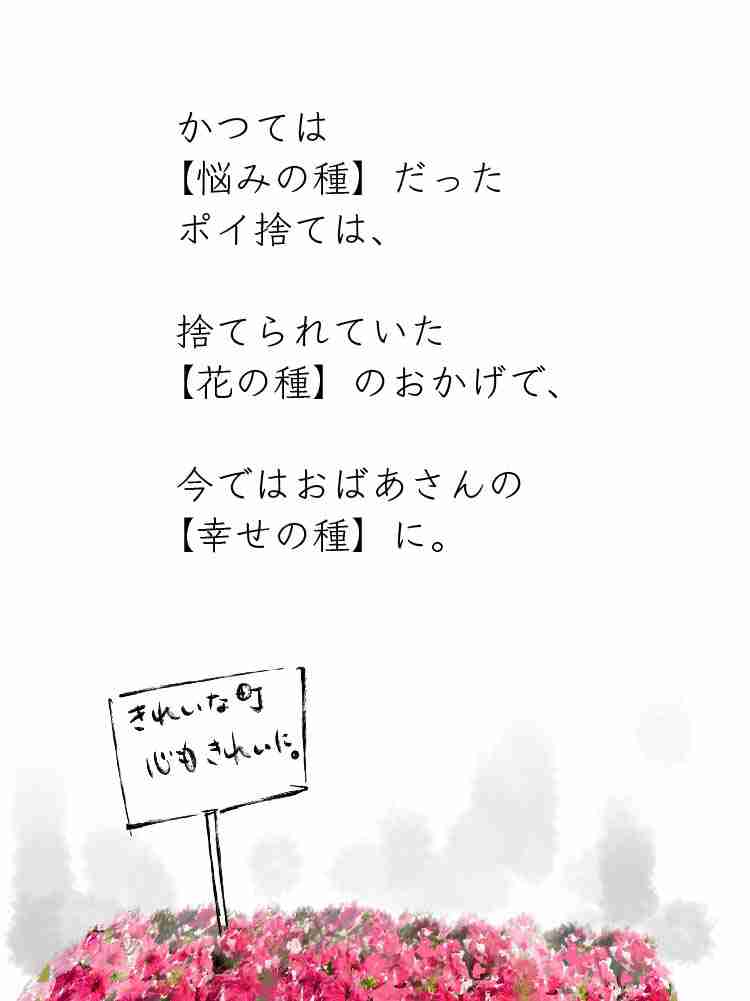 かつては
【悩みの種】だった
ポイ捨ては、
捨てられていた
【花の種】のおかげで、
今ではおばあさんの
【幸せの種】に。
きれいな町
心もきれいに。